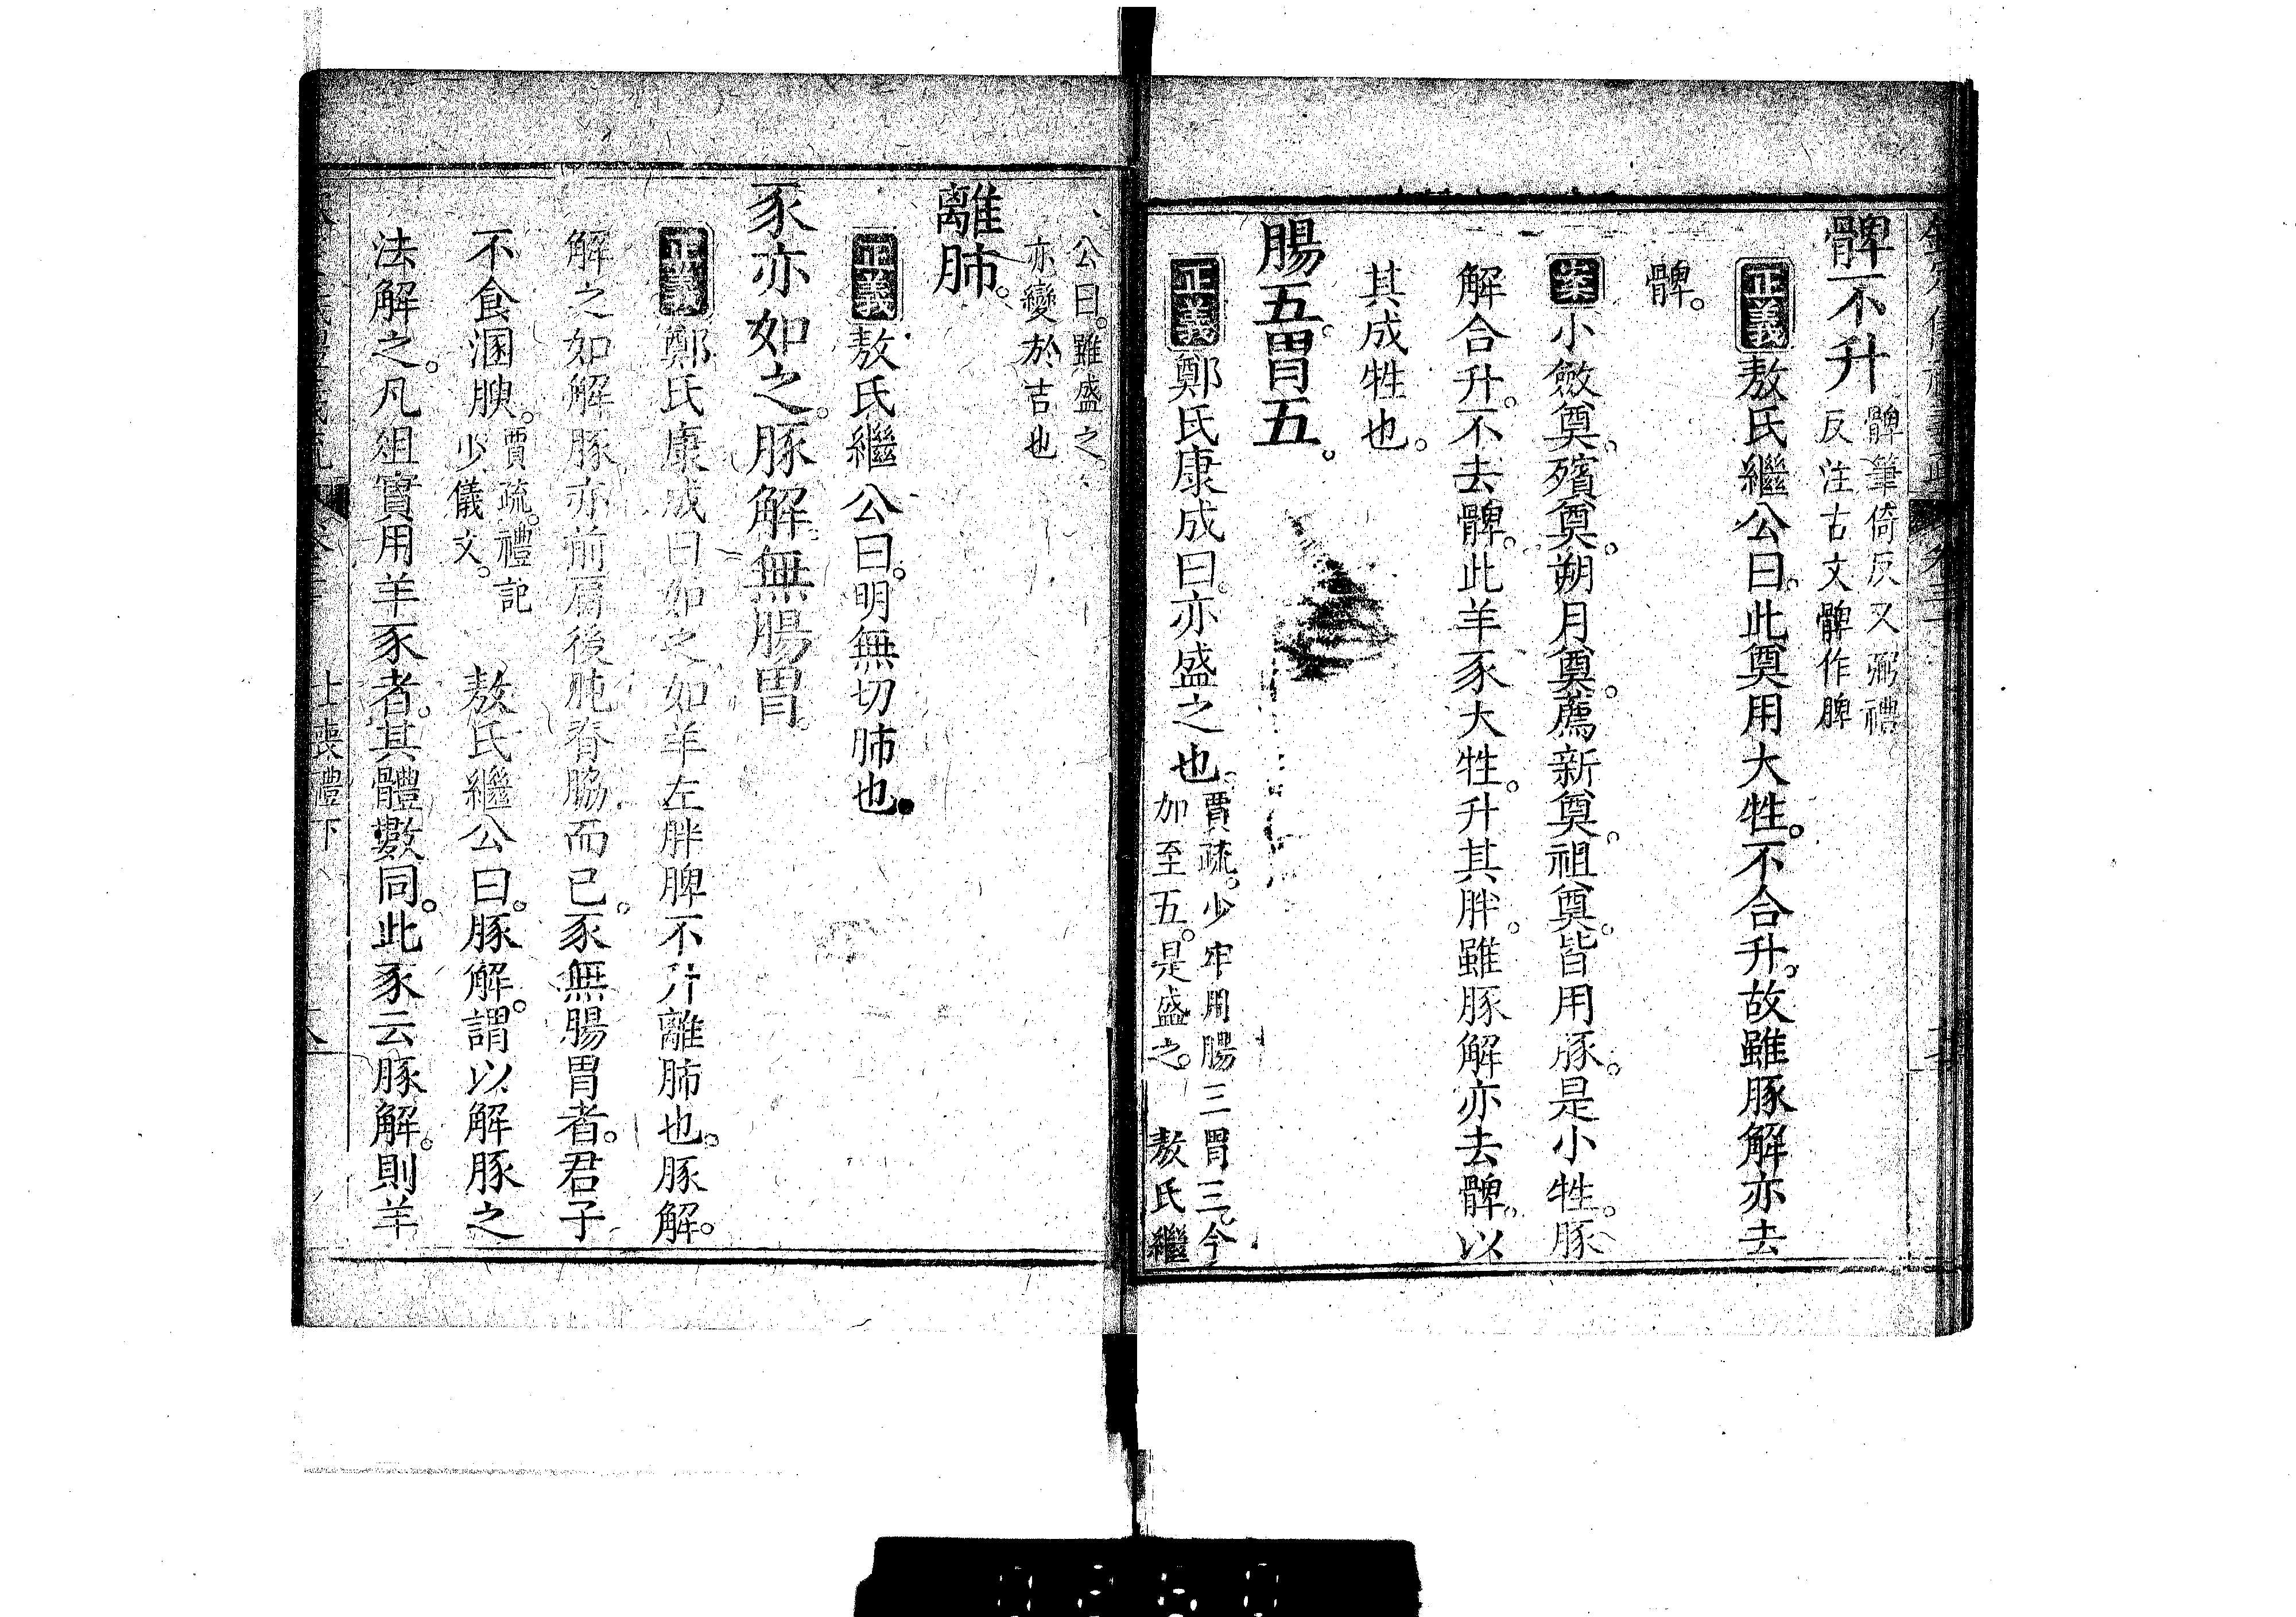 髀不升髀筆倚反又弼禮
反注古文髀作脾
正義敖氏繼公曰。此奠用大牲。不合升。故雖豚解亦去
髀。
案小斂奠。殯奠。朔月奠。薦新奠。祖奠。皆用豚。是小牲。豚
解合升。不去髀。此羊豕大牲。升其胖。雖豚解亦去髀。以
其成牲也。
腸五。胃五。
正義鄭氏康成曰。亦盛之也。賈疏。少牢用腸三胃三。今
加至五。是盛之。 敖氏繼
公曰。雖盛之。
亦變於吉也
離肺。
正義敖氏繼公曰。明無切肺也。
豕亦如之。豚解。無腸胃。
正義鄭氏康成曰如之如羊左胖脾不升離肺也。豚解。
解之如解豚。亦前肩後肫脊脇而已。豕無腸胃者。君子
不食溷腴。賈疏。禮記
少儀文。 敖氏繼公曰。豚解。謂以解豚之
法解之。凡俎實用羊豕者。其體數同。此豕云豚解。則羊
士喪禮下